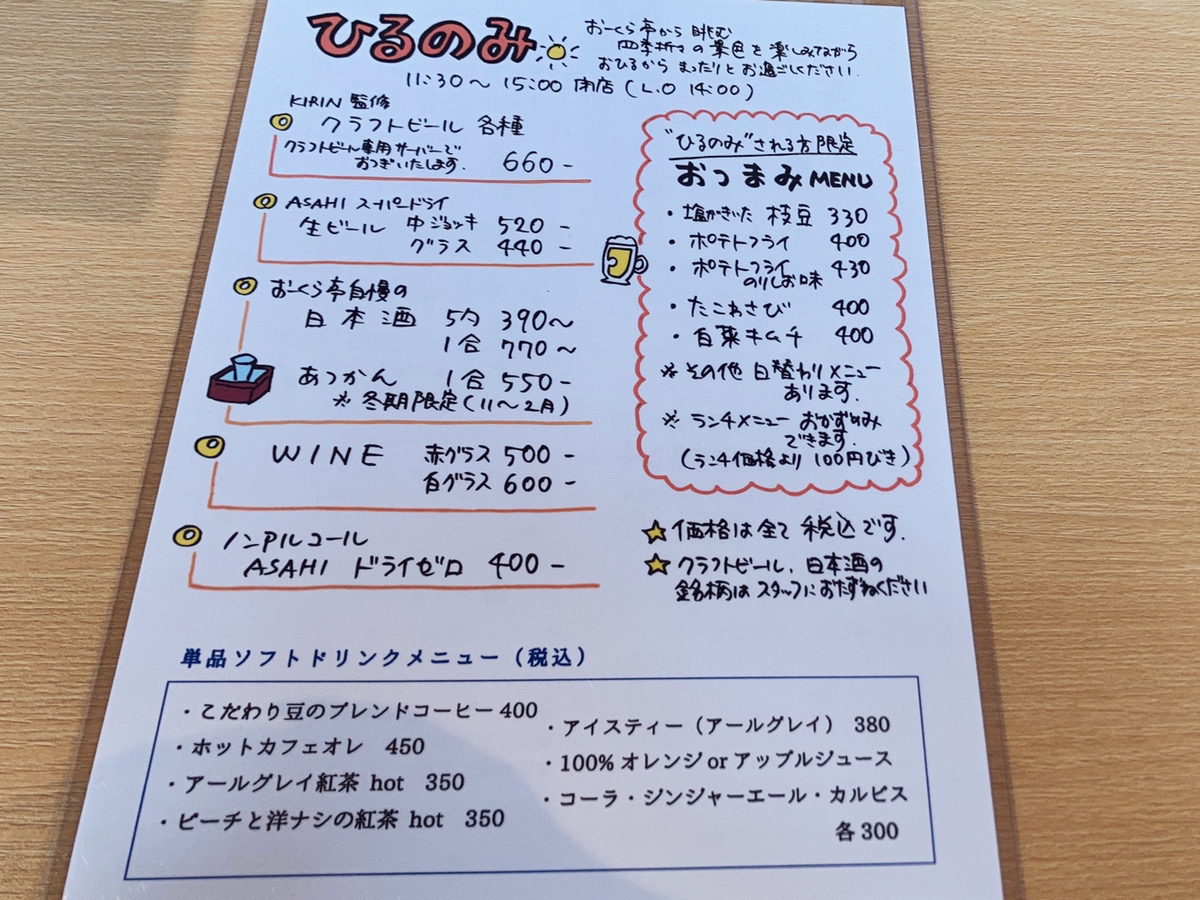 ひるのみ
おーくら亭から眺む
四季折々の景色を楽しみながら
おひるから まったりと お過ごしください.
11:30～15:00 閉店 (L.O 14:00)
KIRIN 監修
クラフトビール 各種
クラフトビール専用サーバーで
おつぎいたします. 660-
ASAHI スーパードライ
生ビール 中ジョッキ 520-
グラス 440-
おーくら亭自慢の
日本酒 5勺 390～
1合 770～
あつかん 1合 550-
※冬期限定(11～2月)
WINE 赤グラス 500-
白グラス 600-
ノンアルコール
ASAHI ドライゼロ 400-
"ひるのみ"される方限定
おつまみ MENU
・塩がきいた 枝豆 330
・ポテトフライ 400
・ポテトフライ 430
のりしお味
・たこわさび 400
・白菜キムチ 400
※その他 日替わりメニュー
あります.
※ランチメニュー おかずのみ
できます.
(ランチ価格より 100円びき)
価格は全て 税込です.
クラフトビール、日本酒の
銘柄は スタッフにおたずねください
単品ソフトドリンクメニュー（税込）
・こだわり豆のブレンドコーヒー 400
・ホットカフェオレ 450
・アールグレイ紅茶 hot 350
・ピーチと洋ナシの紅茶 hot 350
・アイスティー（アールグレイ） 380
・100% オレンジ or アップルジュース
・コーラ・ジンジャーエール・カルピス
各 300